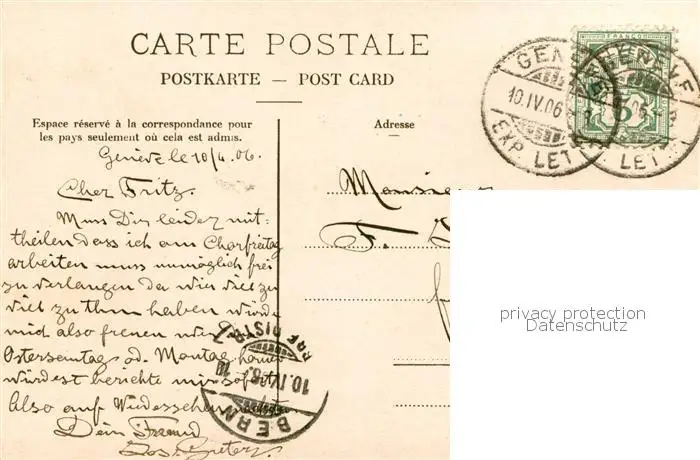 CARTE POSTALE
POSTKARTE — POST CARD
Espace réservé à la correspondance pour
les pays seulement où cela est admis.
Adresse
FRANCO
5
GENÈVE
10.IV.06
EXP. LET
GENÈVE
LET
Genève le 10/4.06.
Cher Fritz.
Muss Dir leider mit-
theilen dass ich am Charfreitag
arbeiten muss unmöglich frei
zu verlangen da wir viel zu
viel zu thun haben
mich also freuen
Ostersonntag od. Montag
würdest berichte mir sofort
Also auf Wiedersehen
Dein Freund
Jos.
Monsieur
F.
BERN
10.IV.
BRF. DISTR.
privacy protection
Datenschutz